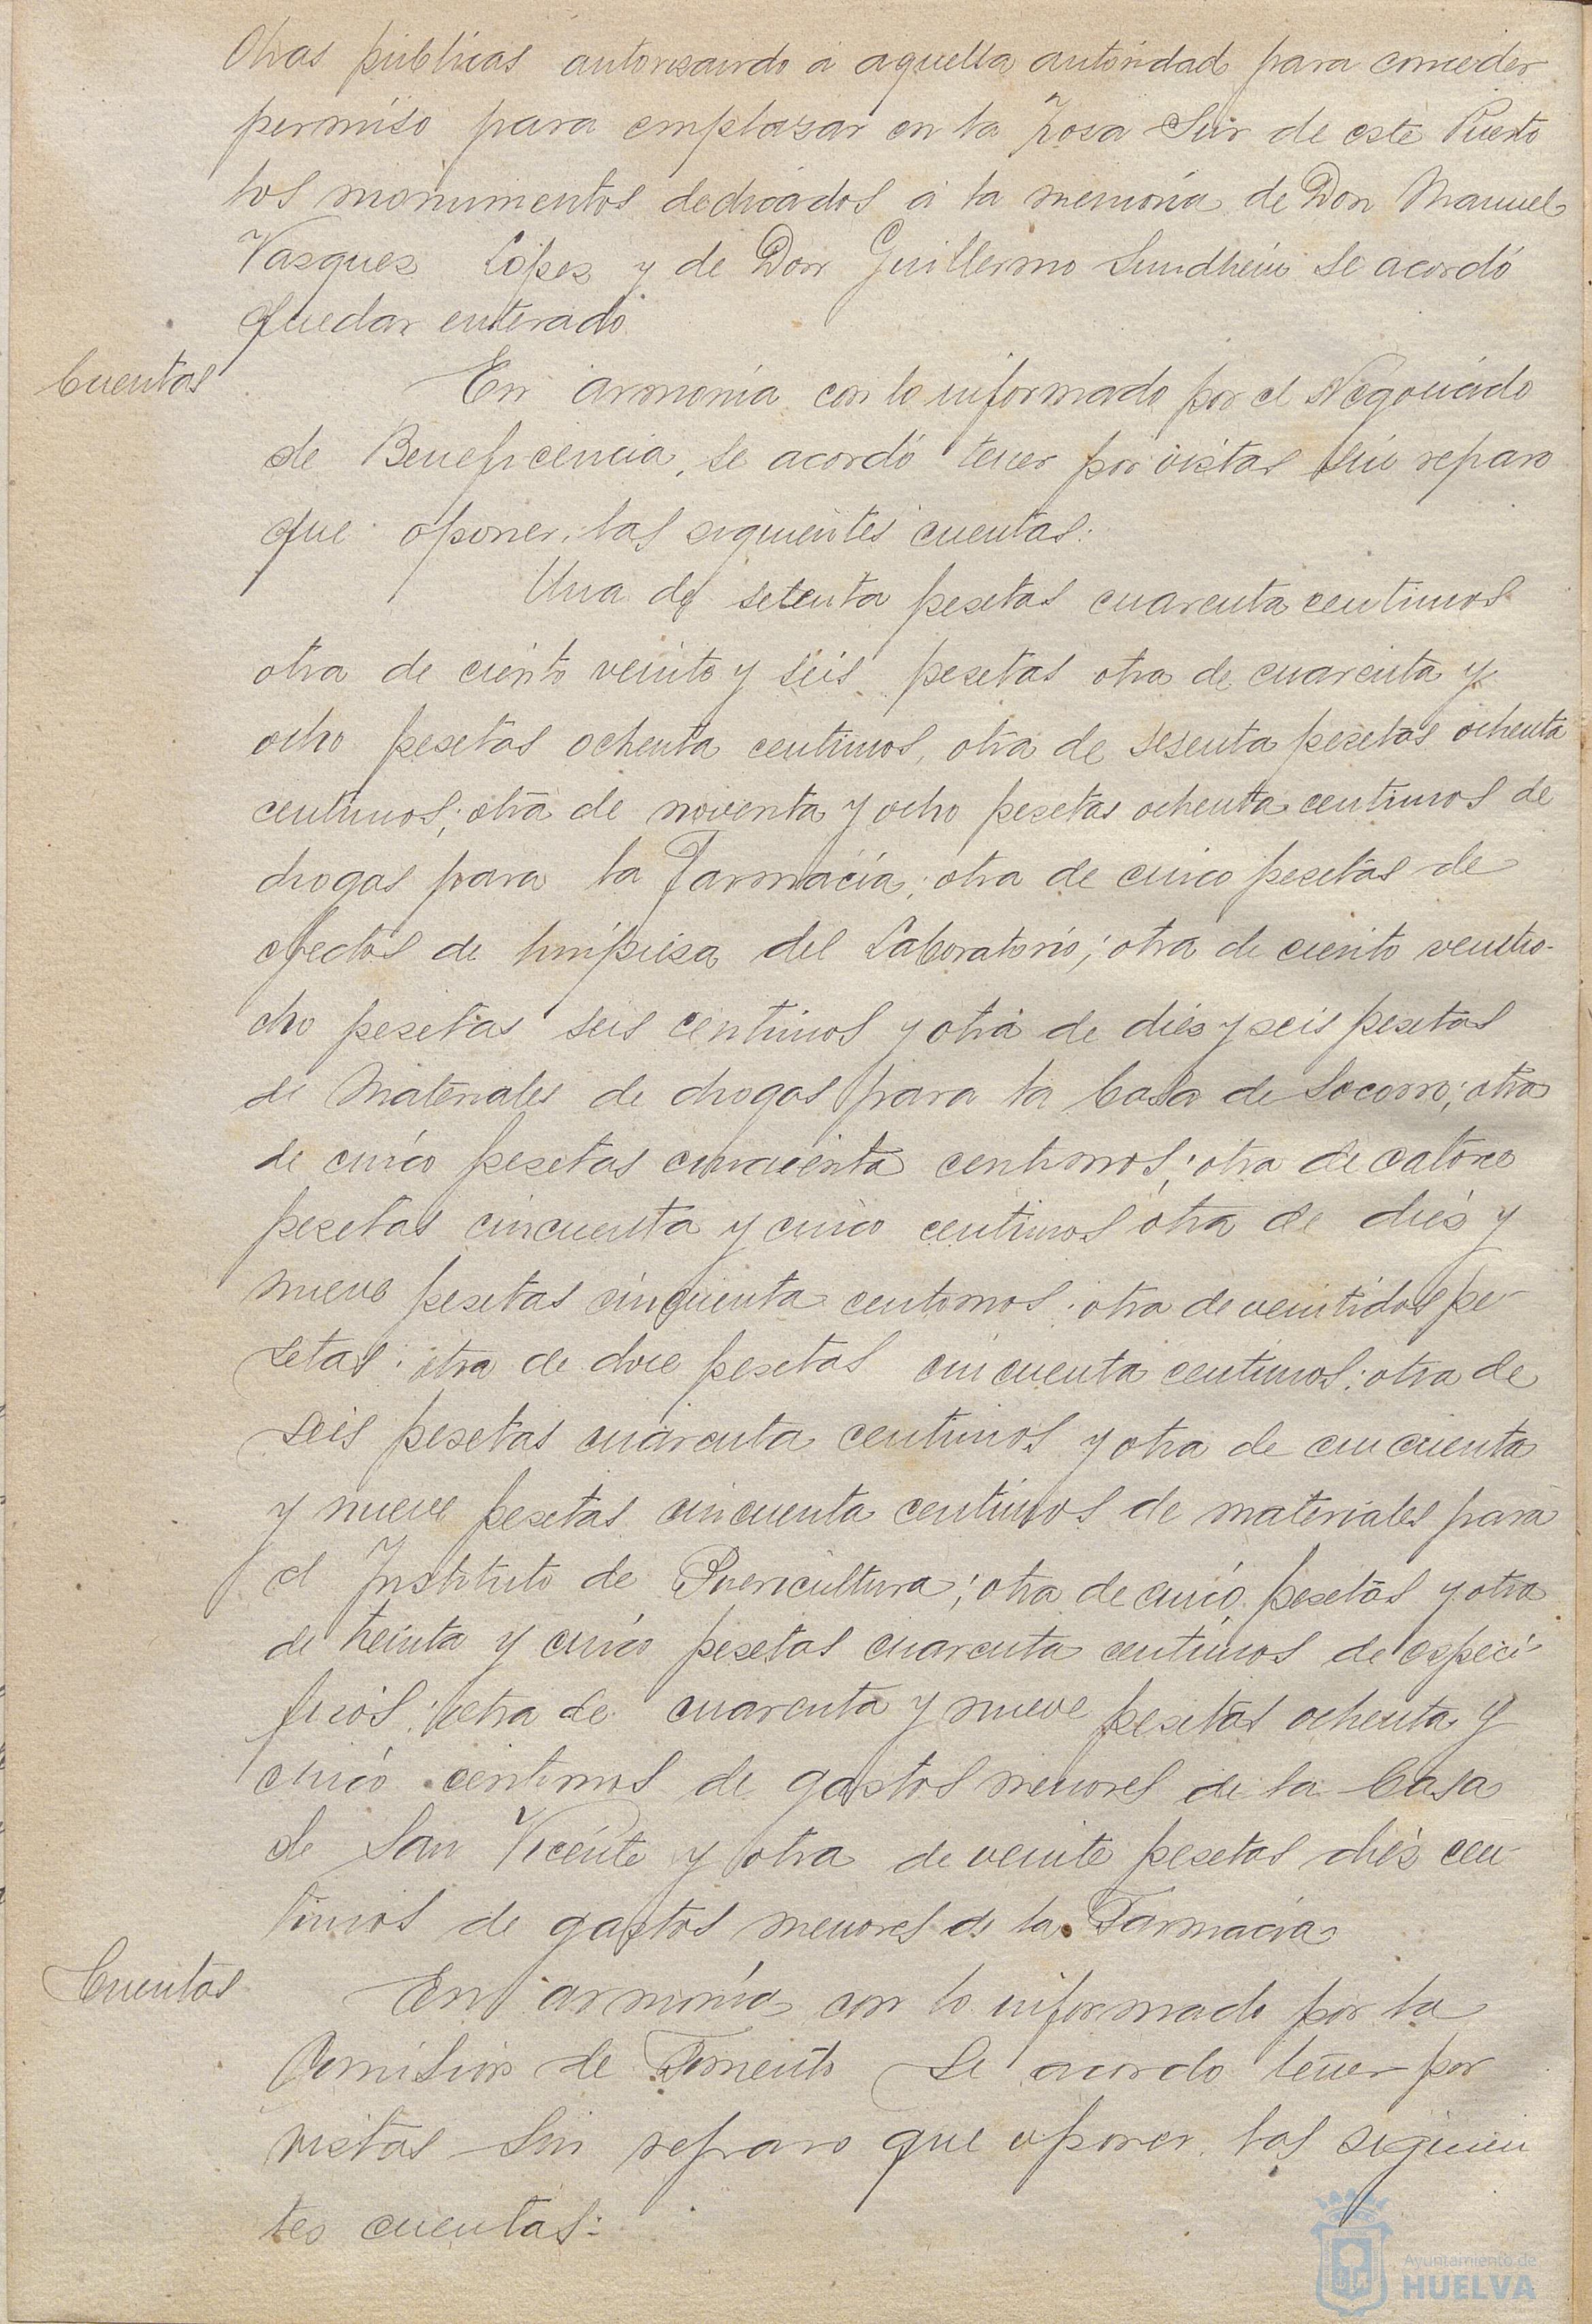 Obras públicas autorisando a aquella autoridad para conceder
permiso para emplasar en la Zosa Sur de este Puerto
los monumentos dedicados a la memoria de Don Manuel
Vasques López y de Don Guillermo Sundhein se acordó
quedar enterado
Cuentas
En armonía con lo informado por el Negociado
de Beneficencia, se acordó tener por vistas sin reparo
que oponer, las siguientes cuentas:
Una de setenta pesetas cuarenta centimos
otra de ciento veinte y seis pesetas otra de cuarenta y
ocho pesetas ochenta centimos, otra de sesenta pesetas ochenta
centimos; otra de noventa y ocho pesetas ochenta centimos de
drogas para la Farmacia; otra de cinco pesetas de
efectos de limpiesa del Laboratorio; otra de ciento veintio-
cho pesetas seis centimos y otra de dies y seis pesetas
de Materiales de drogas para la Casa de Socorro; otra
de cinco pesetas cincuenta centimos; otra de catorce
pesetas cincuenta y cinco centimos otra de dies y
nueve pesetas cincuenta centimos; otra de veintidos pe-
setas; otra de doce pesetas cincuenta centimos; otra de
seis pesetas cuarenta centimos y otra de cincuenta
y nueve pesetas cincuenta centimos de materiales para
el Instituto de Puericultura; otra de cinco pesetas y otra
de treinta y cinco pesetas cuarenta centimos de especi-
ficos; otra de cuarenta y nueve pesetas ochenta y
cinco centimos de gastos menores de la Casa
de San Vicente y otra de veinte pesetas dies cen-
timos de gastos menores de la Farmacia
Cuentas
En armonía con lo informado por la
Comision de Fomento se acordo tener por
vistas sin reparo que oponer las siguien
tes cuentas:
Ayuntamiento de
HUELVA